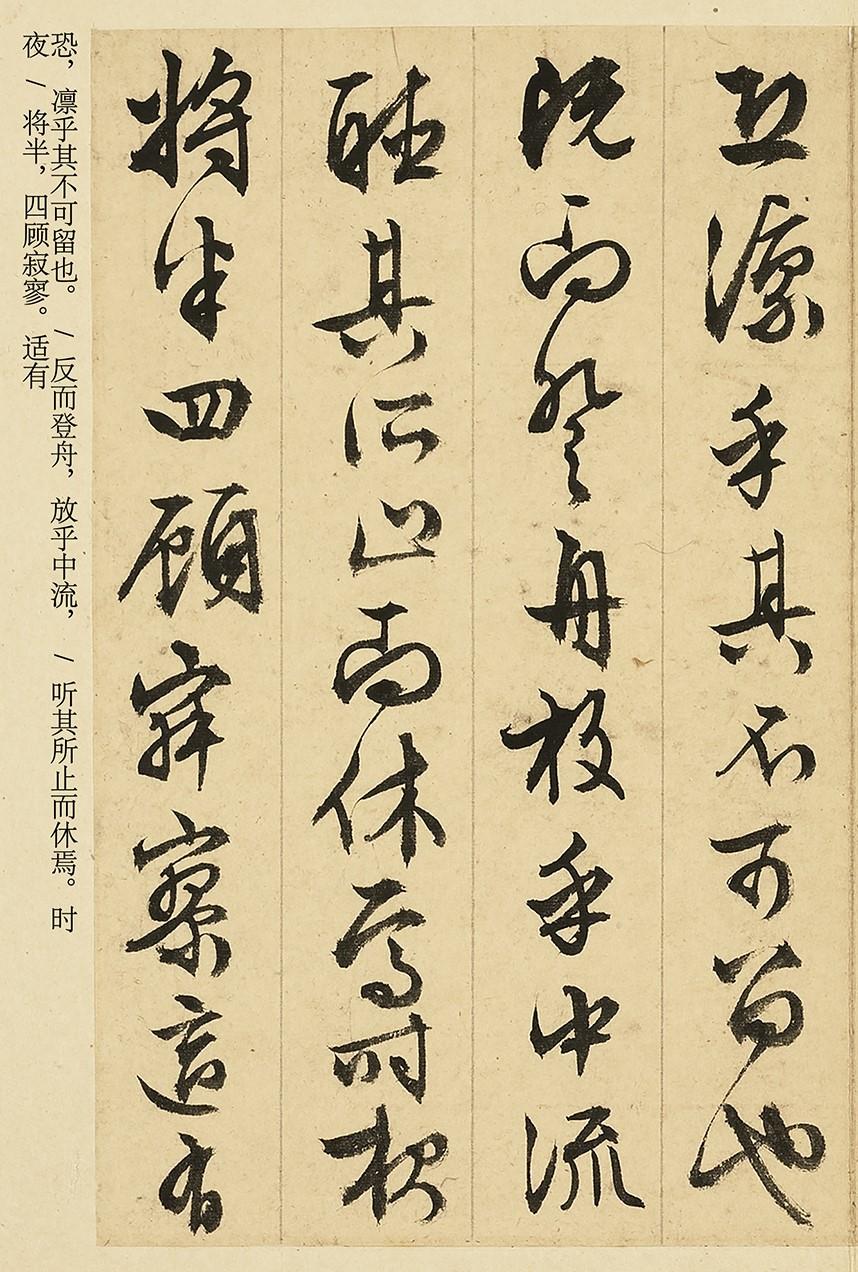 恐凜乎其不可留也
既而登舟放乎中流
聽其所止而休焉時夜
將半四顧寂寥適有
恐，凛乎其不可留也。/ 反而登舟，放乎中流，/ 听其所止而休焉。时
夜 / 将半，四顾寂寥。适有